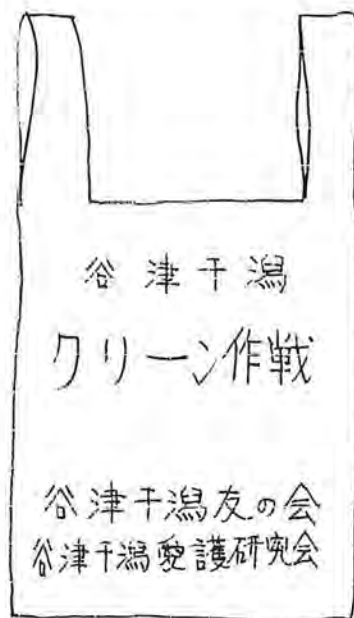 谷津干潟
クリーン作戦
谷津干潟友の会
谷津干潟愛護研究会